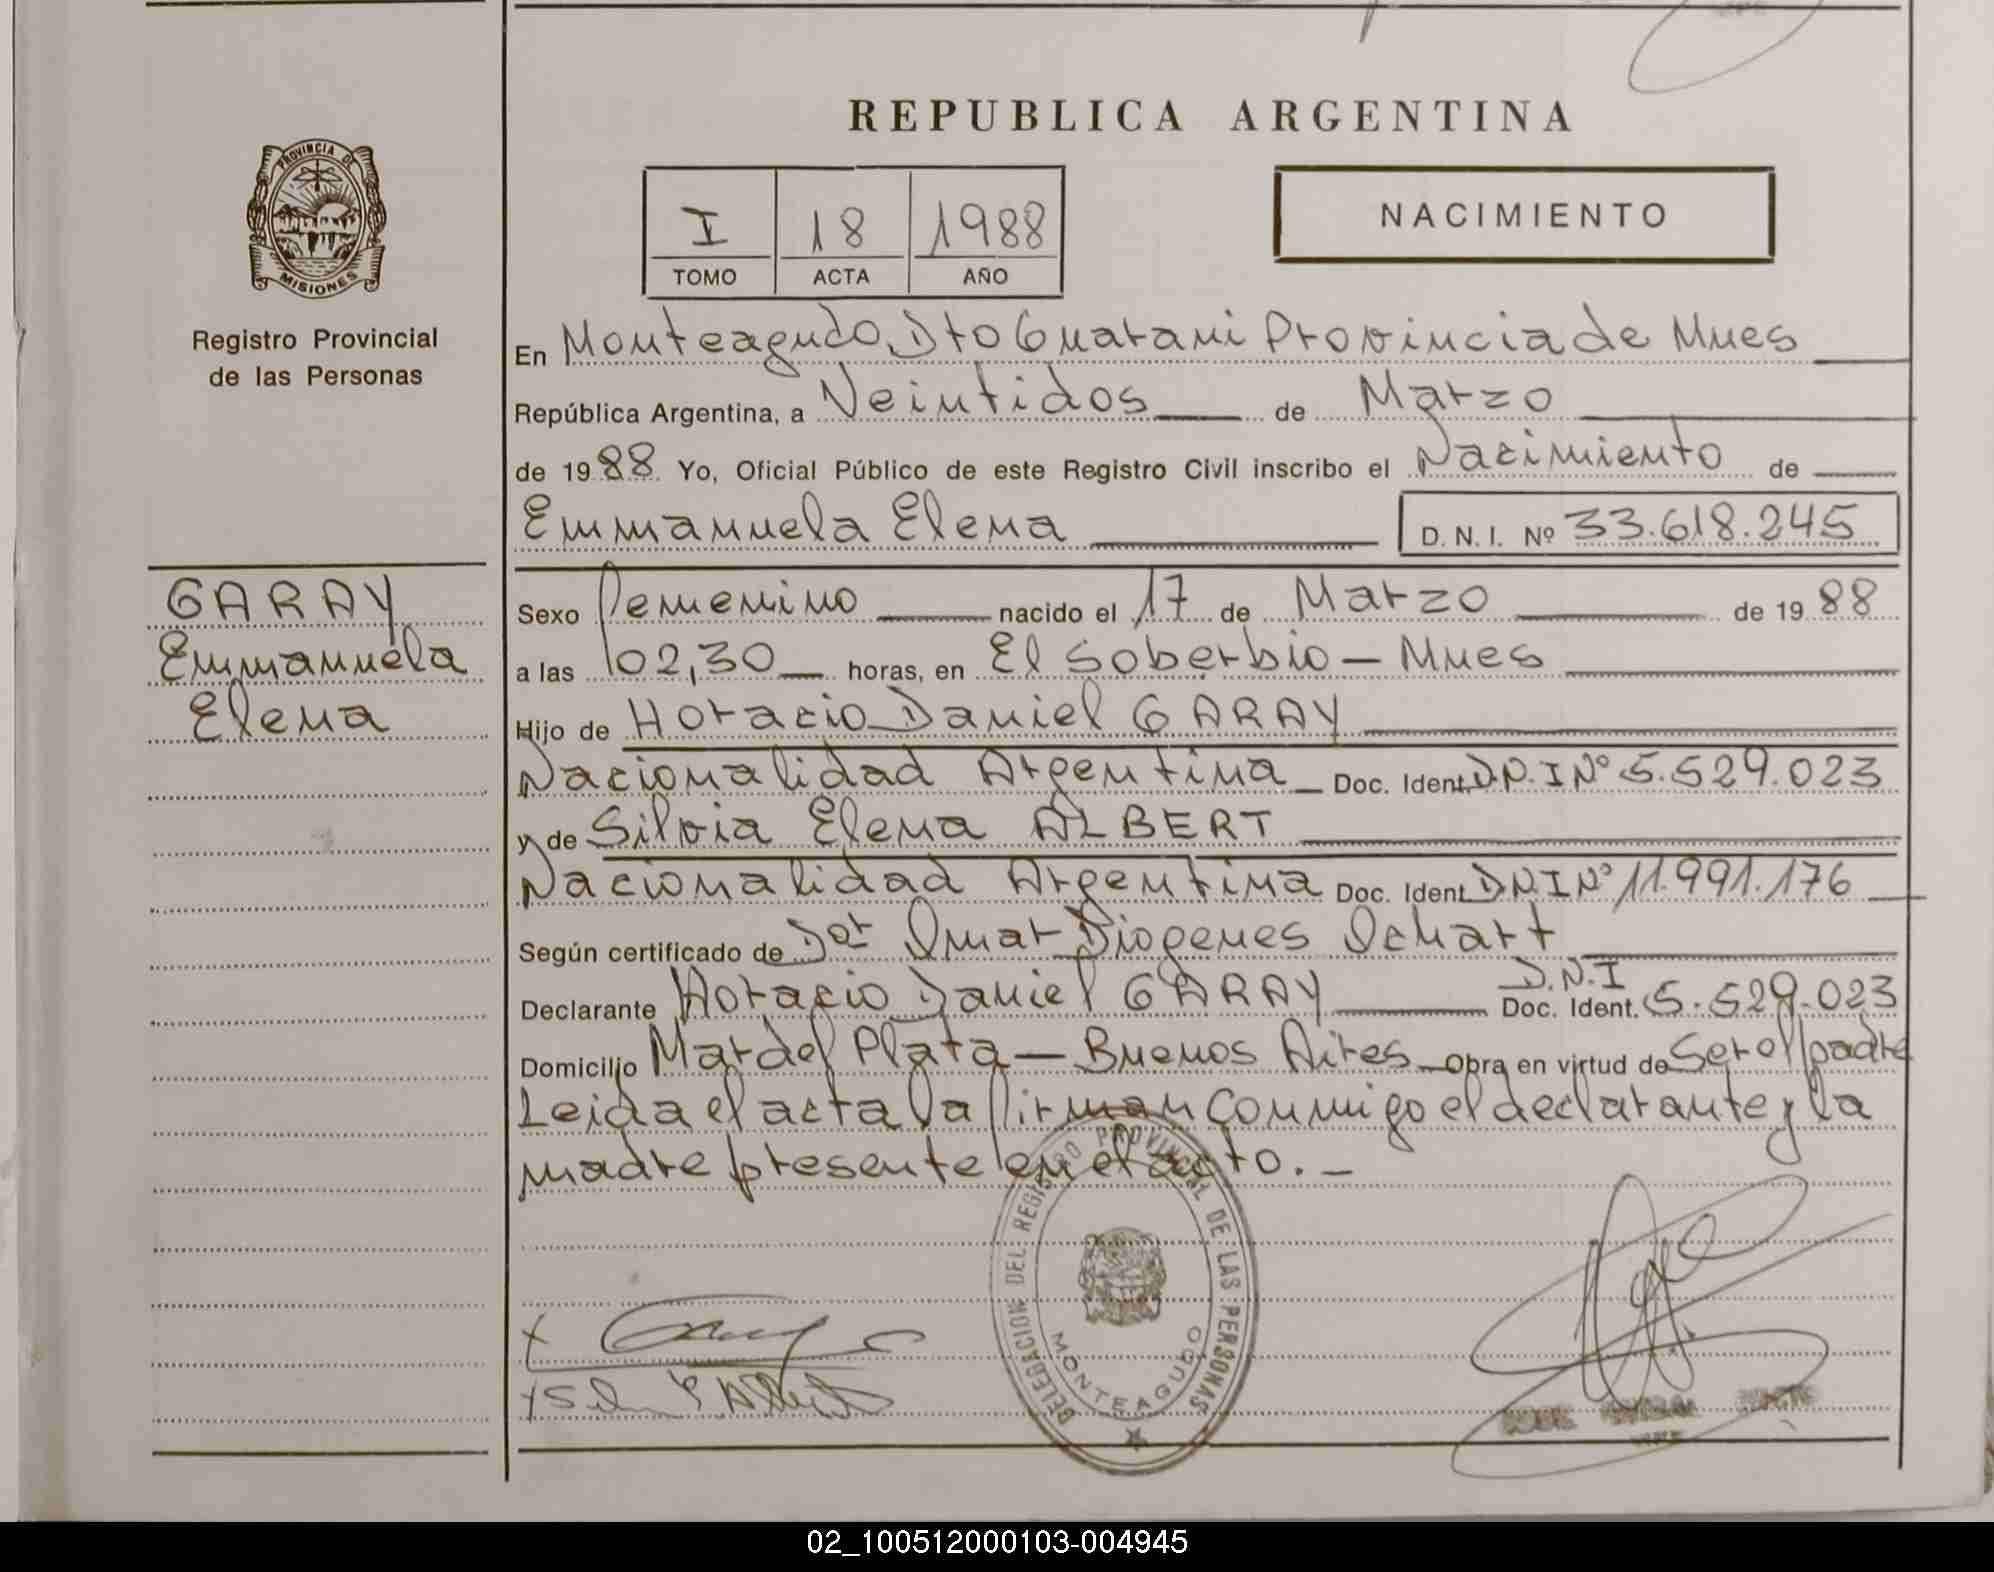 REPUBLICA ARGENTINA
PROVINCIA DE MISIONES
Registro Provincial
de las Personas
I 18 1988
TOMO ACTA AÑO
NACIMIENTO
En Monteagudo, Dto Guarani Provincia de Mnes
República Argentina, a Veintidos de Marzo
de 1988 Yo, Oficial Público de este Registro Civil inscribo el Nacimiento de
Emmanuela Elena D. N. I. Nº 33.618.245
GARAY
Emmanuela
Elena
Sexo Femenino nacido el 17 de Marzo de 1988
a las 02,30 horas, en El Soberbio - Mnes
Hijo de Horacio Daniel GARAY
Nacionalidad Argentina Doc. Ident. D.N.I Nº 5.529.023
y de Silvia Elena ALBERT
Nacionalidad Argentina Doc. Ident. D.N.I Nº 11.991.176
Según certificado de Dor Omar Diogenes Ochart
Declarante Horacio Daniel GARAY D.N.I Doc. Ident. 5.529.023
Domicilio Mar del Plata - Buenos Aires Obra en virtud de Ser el padre
Leida el acta la firman conmigo el declarante y la
madre presente en el acto. -
DELEGACION DEL REGISTRO PROVINCIAL DE LAS PERSONAS
MONTEAGUDO
02_100512000103-004945